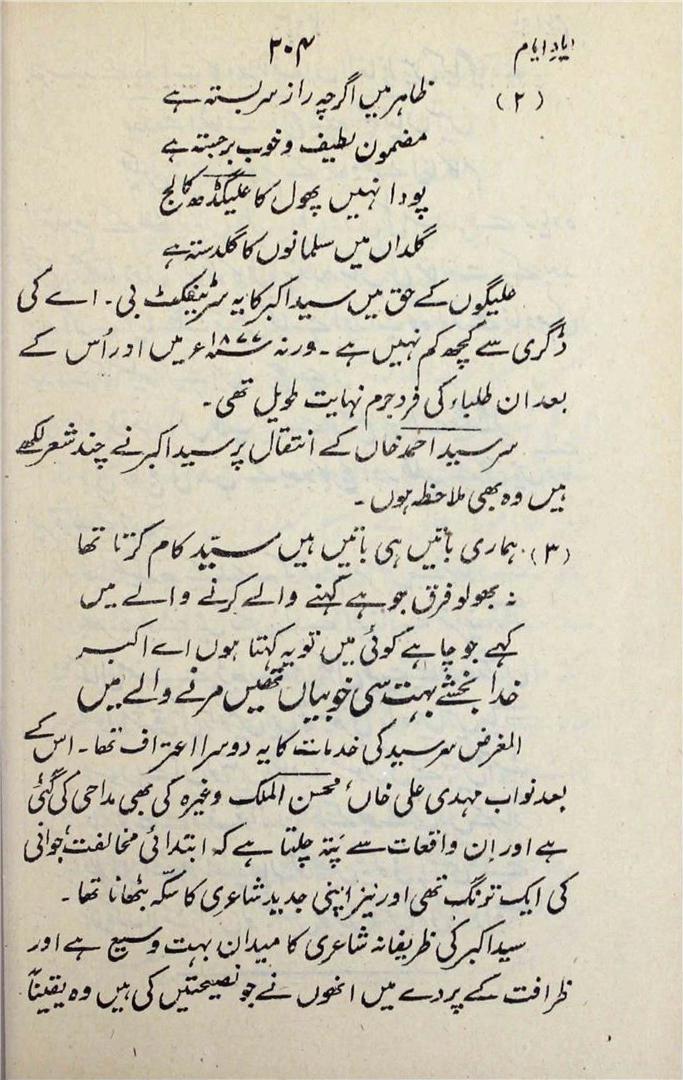 یادِ ایام ۳۰۴
(۲) ظاہر میں اگرچہ راز سربستہ ہے
مضمون لطیف و خوب برجستہ ہے
پودا نہیں پھول کا علیگڈھ کالج
گلداں میں مسلمانوں کا گلدستہ ہے
علیگوں کے حق میں سید اکبر کا یہ سرٹیفکٹ بی۔ اے کی
ڈگری سے کچھ کم نہیں ہے۔ ورنہ ۱۸۷۷ء میں اور اُس کے
بعد ان طلباء کی فردِ جرم نہایت طویل تھی۔
سرسید احمد خاں کے انتقال پر سید اکبر نے چند شعر لکھے
ہیں وہ بھی ملاحظہ ہوں۔
(۳) ہماری باتیں ہی باتیں ہیں سیّد کام کرتا تھا
نہ بھولو فرق جو ہے کہنے والے کرنے والے میں
کہے جو چاہے کوئی میں تو یہ کہتا ہوں اے اکبر
خدا بخشے بہت سی خوبیاں تھیں مرنے والے میں
الغرض سرسید کی خدمات کا یہ دوسرا اعتراف تھا۔ اس کے
بعد نواب مہدی علی خاں، محسن الملک وغیرہ کی بھی مداحی کی گئی
ہے اور اِن واقعات سے پتہ چلتا ہے کہ ابتدائی مخالفت، جوانی
کی ایک تونگ تھی اور نیز اپنی جدید شاعری کا سکّہ بٹھانا تھا۔
سید اکبر کی ظریفانہ شاعری کا میدان بہت وسیع ہے اور
ظرافت کے پردے میں انھوں نے جو نصیحتیں کی ہیں وہ یقیناً